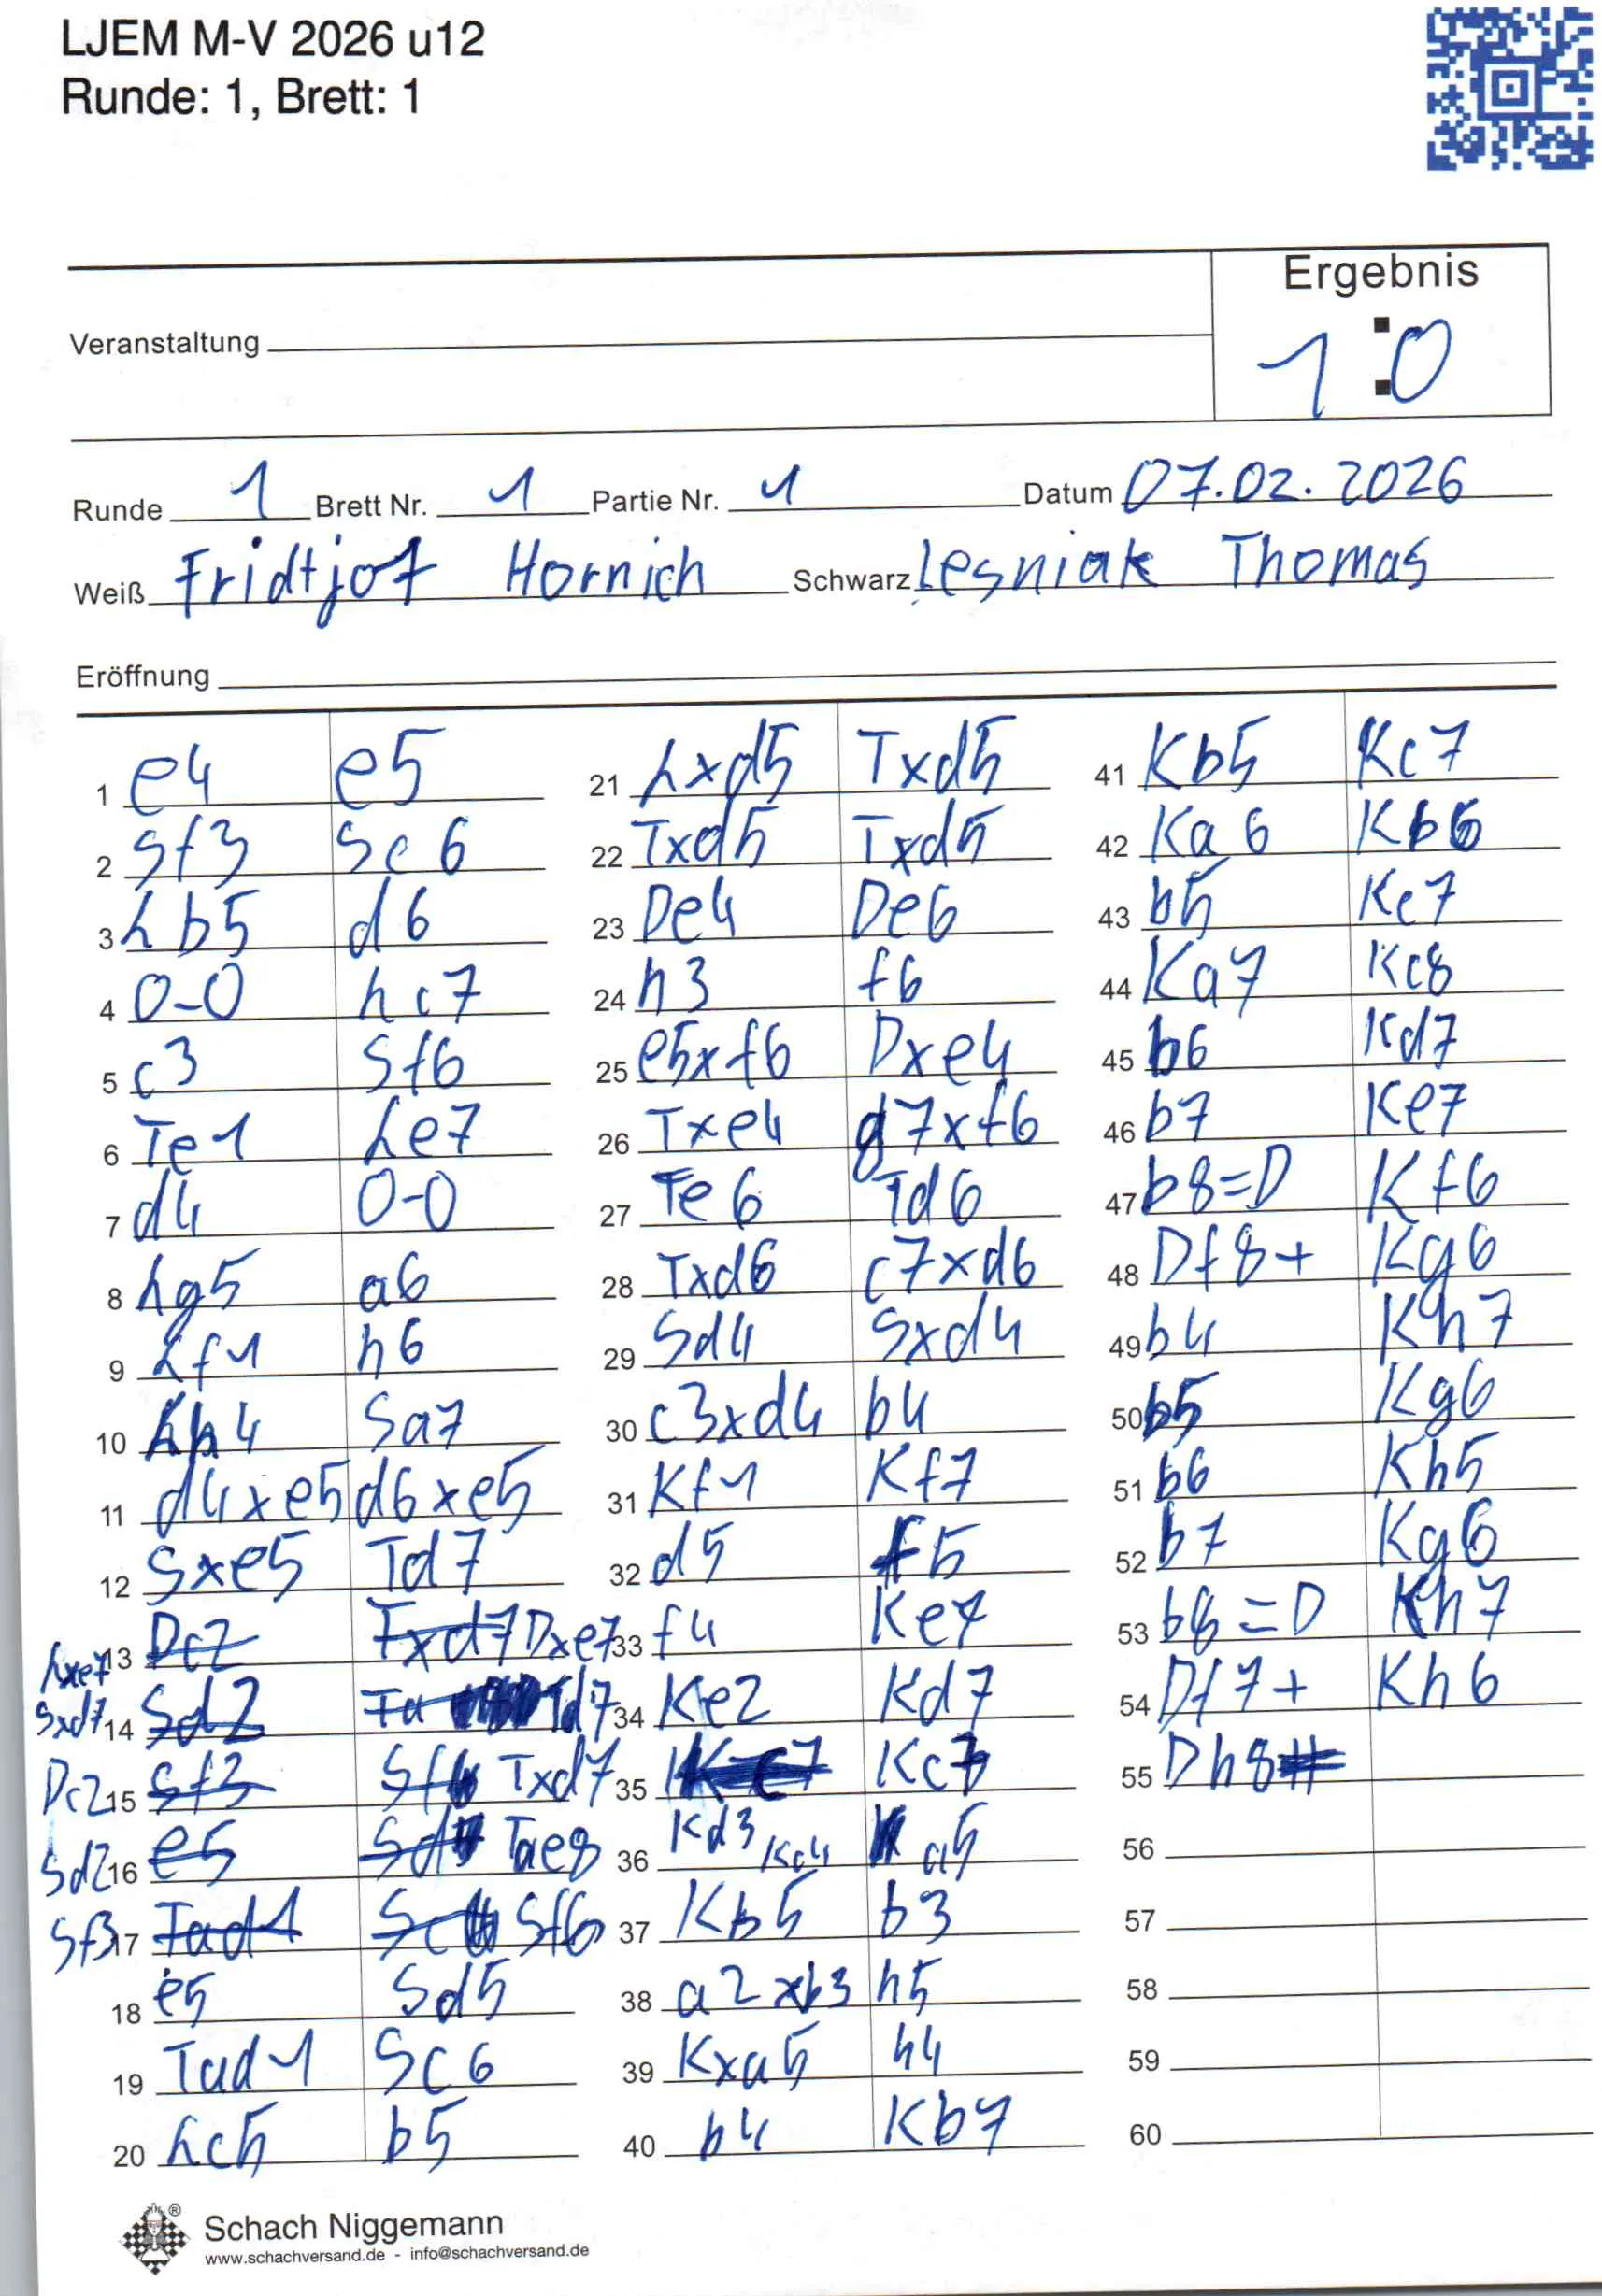 LJEM M-V 2026 u12
Runde: 1, Brett: 1
Ergebnis
1:0
Veranstaltung
Runde 1 Brett Nr. 1 Partie Nr. 1 Datum 07.02.2026
Weiß Fridtjof Hornich Schwarz Lesniak Thomas
Eröffnung
1 e4 e5
2 Sf3 Sc6
3 Lb5 d6
4 0-0 Lc7
5 c3 Sf6
6 Te1 Le7
7 d4 0-0
8 Lg5 a6
9 Lf1 h6
10 Lh4 Sa7
11 d4xe5 d6xe5
12 Sxe5 Td7
Lxe7 13 Dc2 Txd7 Dxe7
Sxd7 14 Sd2 Td7
Dc2 15 Sf3 Sf6 Txd7
Sd2 16 e5 Tae8
Sf3 17 Tad1 Sf6
18 e5 Sd5
19 Tad1 Sc6
20 Lc5 b5
21 Lxd5 Txd5
22 Txd5 Txd5
23 De4 De6
24 h3 f6
25 e5xf6 Dxe4
26 Txe4 g7xf6
27 Te6 Td6
28 Txd6 c7xd6
29 Sd4 Sxd4
30 c3xd4 b4
31 Kf1 Kf7
32 d5 f5
33 f4 Ke7
34 Ke2 Kd7
35 Kc7
36 Kd3 Kc4 a5
37 Kb5 b3
38 a2xb3 h5
39 Kxa5 h4
40 b4 Kb7
41 Kb5 Kc7
42 Ka6 Kb6
43 b5 Kc7
44 Ka7 Kc8
45 b6 Kd7
46 b7 Ke7
47 b8=D Kf6
48 Df8+ Kg6
49 b4 Kh7
50 b5 Kg6
51 b6 Kh5
52 b7 Kg6
53 b8=D Kh7
54 Df7+ Kh6
55 Dh8#
56
57
58
59
60
Schach Niggemann
www.schachversand.de - info@schachversand.de